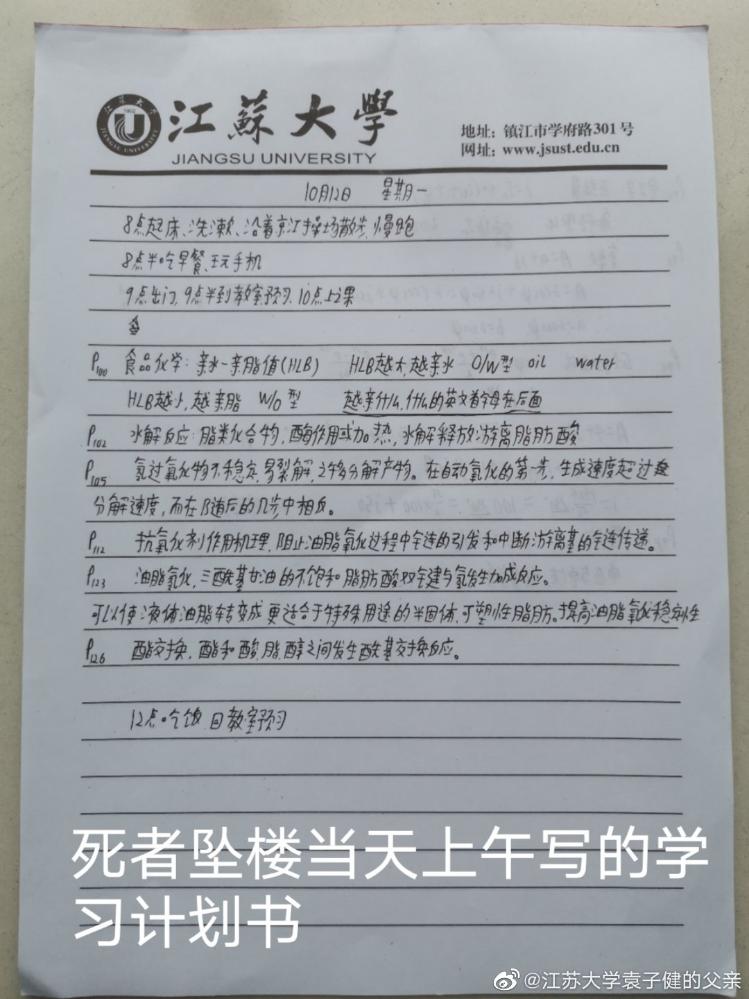 江蘇大學
JIANGSU UNIVERSITY
地址：镇江市学府路301号
网址：www.jsust.edu.cn
10月12日 星期一
8点起床、洗漱、沿着京江操场散步、慢跑
8点半吃早餐、玩手机
9点出门，9点半到教室预习，10点上课
P100 食品化学：亲水-亲脂值(HLB) HLB越大，越亲水 O/W型 oil water
HLB越小，越亲脂 W/O型 越亲什么，什么的英文首字母在后面
P102 水解反应：脂类化合物，酶作用或加热，水解释放游离脂肪酸
P105 氢过氧化物不稳定，易裂解，之多分解产物。在自动氧化的第一步，生成速度超过
分解速度，而在随后的几步中相反。
P112 抗氧化剂作用机理，阻止油脂氧化过程中链的引发和中断游离基的链传递。
P123 油脂氢化，三酰基甘油的不饱和脂肪酸双键与氢发生加成反应。
可以使液体油脂转变成更适合于特殊用途的半固体，可塑性脂肪。提高油脂氧化稳定性
P126 酯交换，酯和酸，脂，醇之间发生酰基交换反应。
12点吃饭 回教室预习
死者坠楼当天上午写的学
习计划书
@江苏大学袁子健的父亲